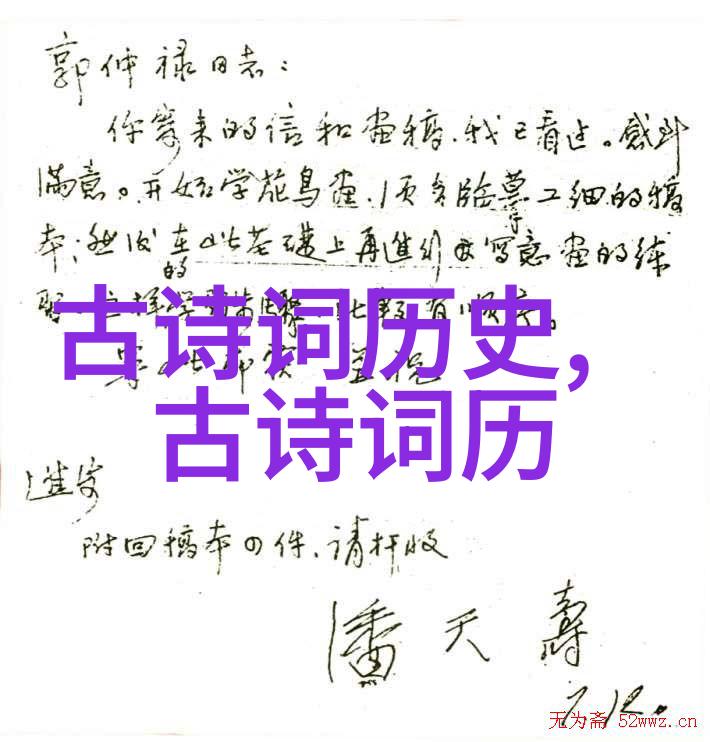 郭仲禄同志：
你寄来的信和画稿，我已看过。感到
满意。开始学花鸟画，须多临摹工细的稿
本；然后在此基础上再进行写意画的练
习
的
古诗词历史，
古诗词历
进步
附回稿本四件，请检收
潘天寿
7.12.
无为斋 52wwz.cn